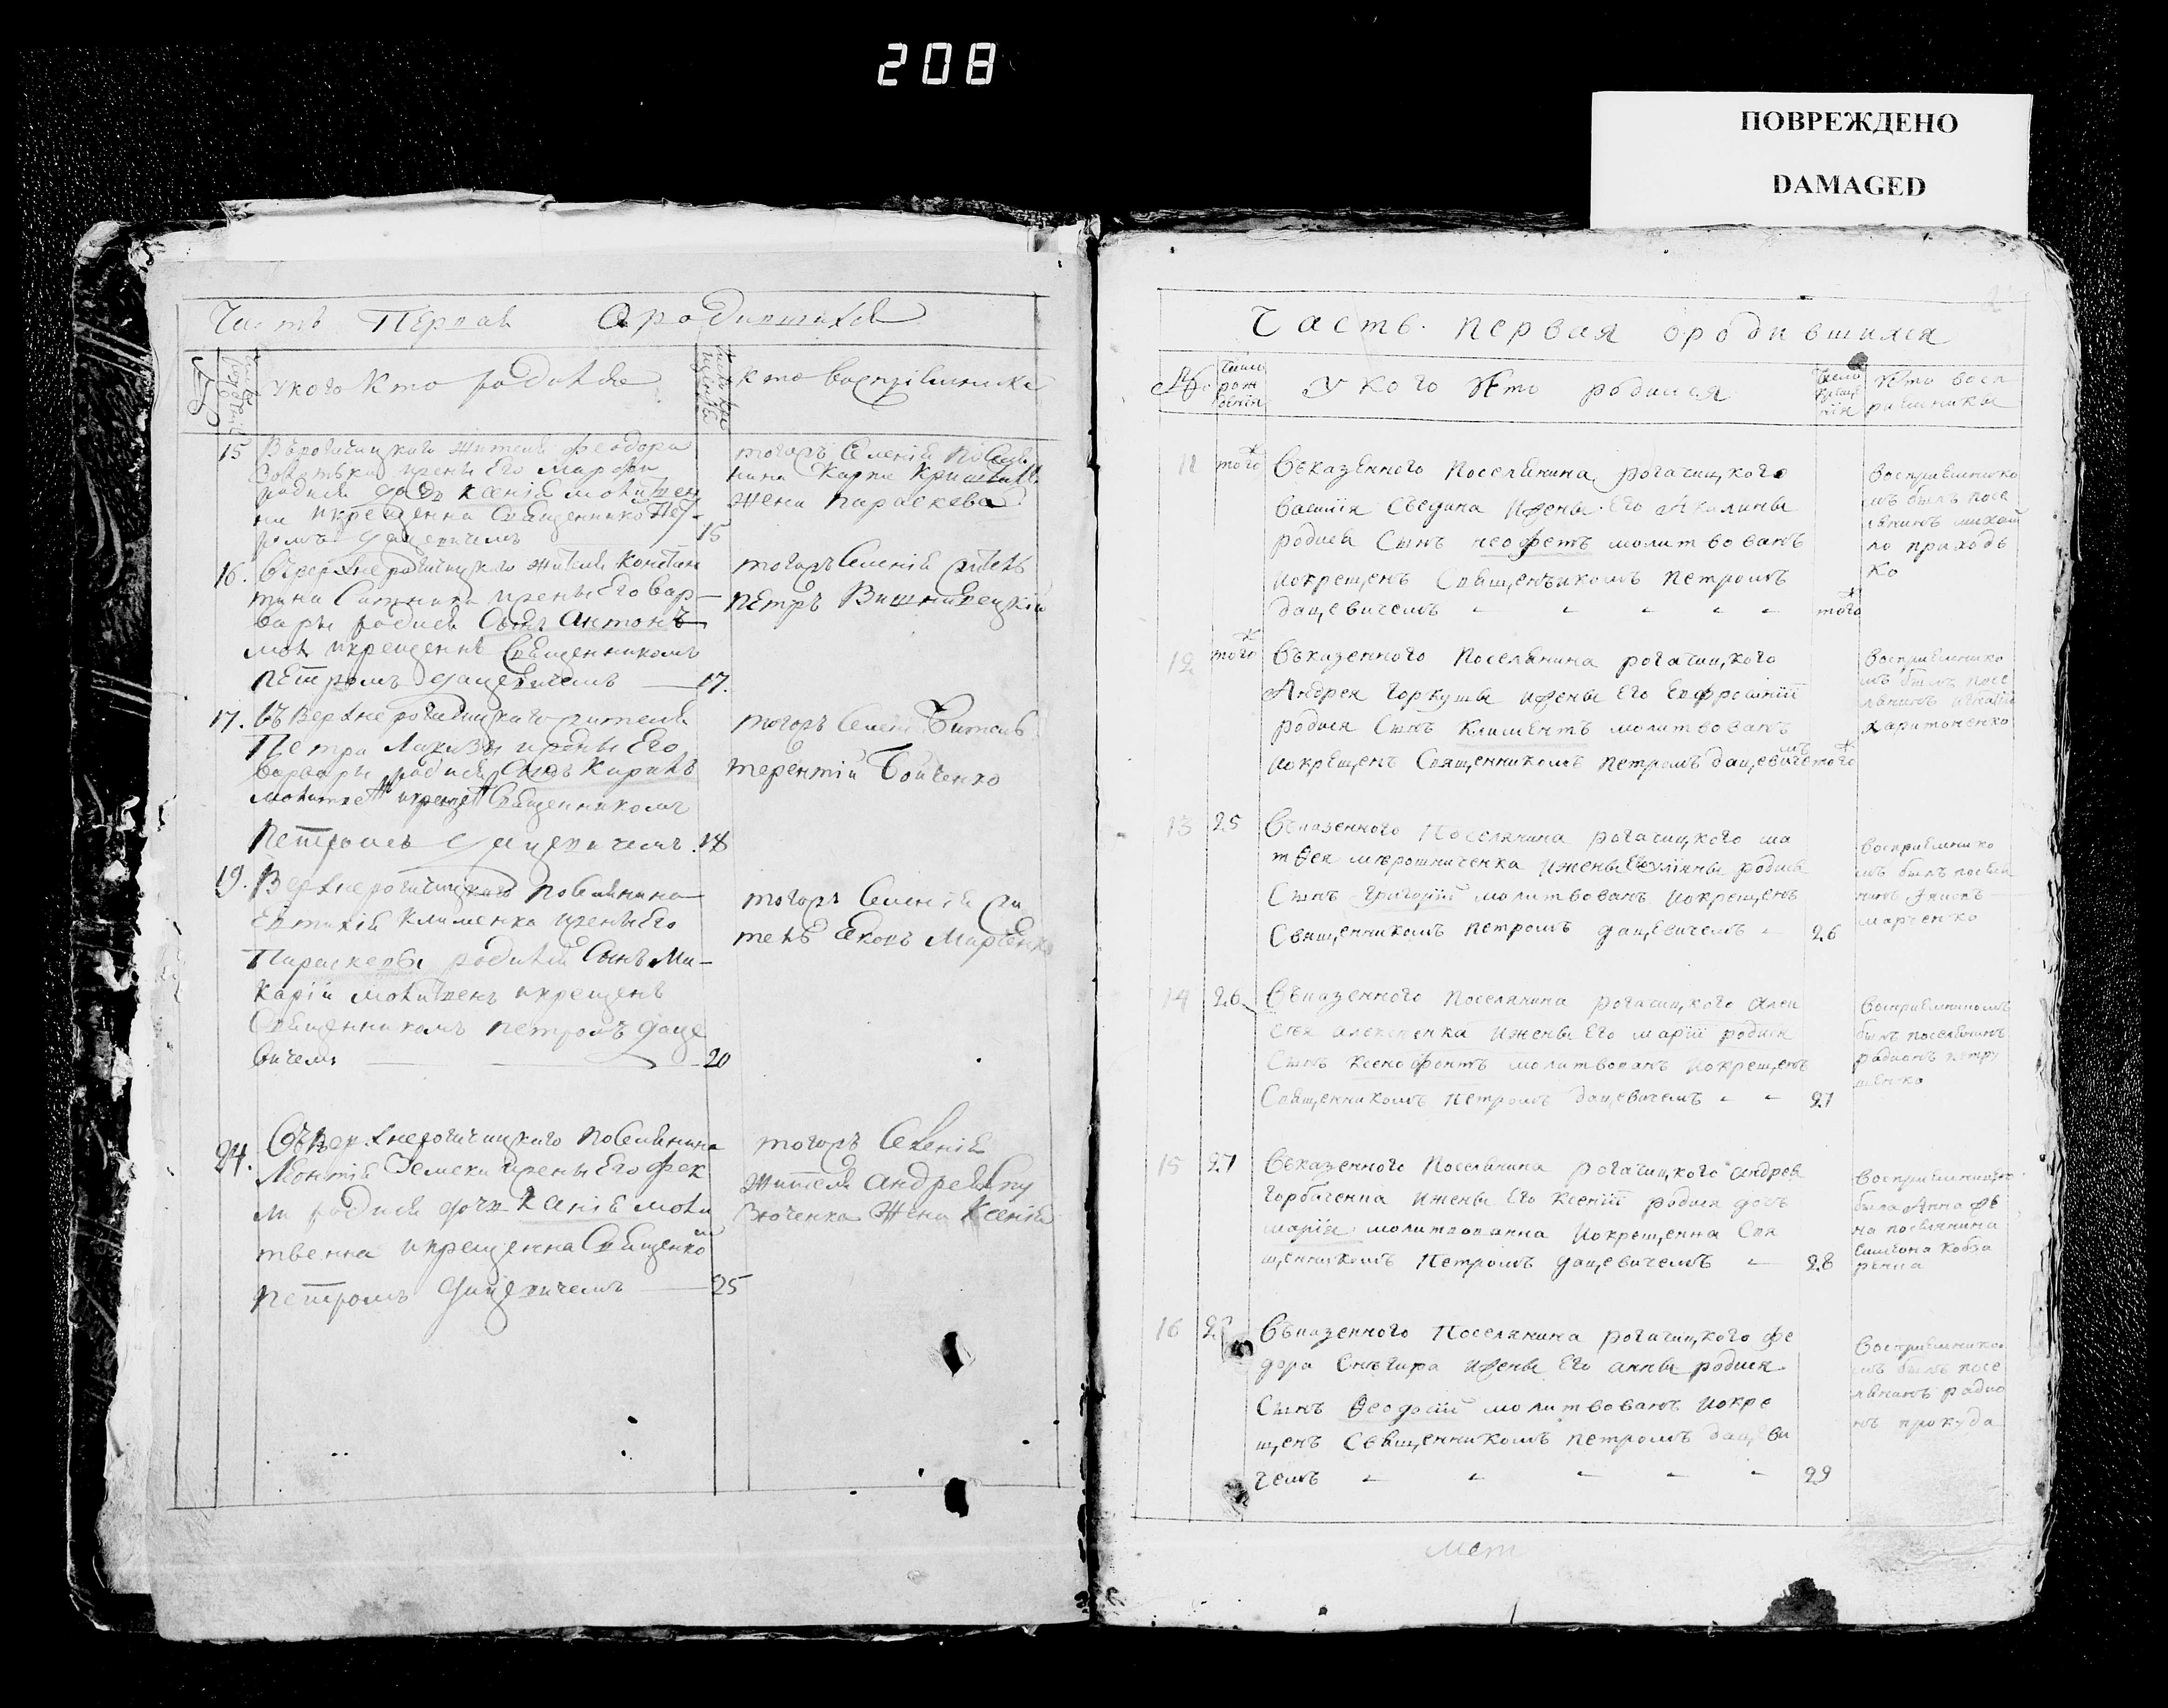 208
ПОВРЕЖДЕНО
DAMAGED
Часть Первая О родившихся
№
у кого кто родился
кто восприемники
15 Верогачицкаго жителя Феодора
жены Его Марфы
родися дочь Ксенія молитвен
на икрещенна Священникомъ Пет
ромъ Дацевичемъ 15
тогожъ Селенія Посел
нина Карпа
жена Параскева
16. Въверхнерогачицкаго жителя Констан
тина Ситника ижены Его Вар
вары родися Сынъ Антонъ
мол икрещенъ Священникомъ
Петромъ Дацевичемъ 17.
тогожъ Селенія житель
Петръ Вишневецкій
17. Въ Верхнерогачицкаго жителя
Петра Лакизы ижены Его
Варвары родися Сынъ Кирилъ
молитве икреще Священникомъ
Петромъ Дацевичемъ. 18
тогожъ Селен житель
терентій Бойченко
19. Верхнерогачицкаго Поселянина
Евтихія Клименка ижены Его
Параскевы родился Сынъ Ма-
карій молитвенъ икрещенъ
Священникомъ Петромъ Даце
вичемъ 20
тогожъ Селенія жи
тель Яковъ Марченко
24. Въверхнерогачицкаго Поселянина
Леонтія Земски ижены Его Фек
лы родися дочь Ксенія моли
твенна икрещенна Священнико
Петромъ Дацевичемъ 25
тогожъ Селенія
жителя Андрея
жена Ксенія
Часть первая ородившихся
№
Число рож денія
У кого Кто родился
Число крещенія
Кто восп ріемники
11 того ж Въказенного Поселянина рогачицкого
Василія Съедина Ижены Его Акилины
родися Сынъ неофетъ молитвованъ
Иокрещенъ Священъникомъ Петромъ
дацевичемъ того ж
Восприемнико
мъ былъ посе
лянинъ михай
ло приходь
ко
12 того ж Въказенного Поселянина рогачицкого
Андрея Горкуши Ижены Его Евфросиніи
родися Сынъ Климентъ молитвованъ
Иокрещенъ Священникомъ Петромъ дацевичемъ того ж
Восприемнико
мъ былъ посе
лянинъ
харитоненко
13 25 Въказенного Поселянина рогачицкого ма
тѳея мирошниченка Ижены Его родися
Сынъ Григорій молитвованъ Иокрещенъ
Священникомъ Петромъ дацевичемъ 26
Восприемнико
мъ былъ поселя
нинъ Яковъ
марченко
14 26 Въказенного Поселянина рогачицкого Алек
сѣя алексеенка Ижены Его маріи родися
Сынъ Ксенофонтъ молитвованъ Иокрещенъ
Священникомъ Петромъ дацевичемъ 27
Восприемникомъ
былъ поселянинъ
радионъ петру
шенко
15 27 Въказенного Поселянина рогачицкого Андрея
Горбаченка Ижены Его Ксеніи родися дочь
марія молитвованна Иокрещенна Свя
щенникомъ Петромъ дацевичемъ 28
Восприемницею
была Анна же
на поселянина
Симеона Кобза
ренка
16 Въказенного Поселянина рогачицкого Фе
дора Снегира Ижены Его анны родися
Сынъ Ѳеодосій молитвованъ Иокре
щенъ Священникомъ Петромъ дацеви
чемъ 29
Восприемнико
мъ былъ посе
лянинъ радио
нъ прокуда